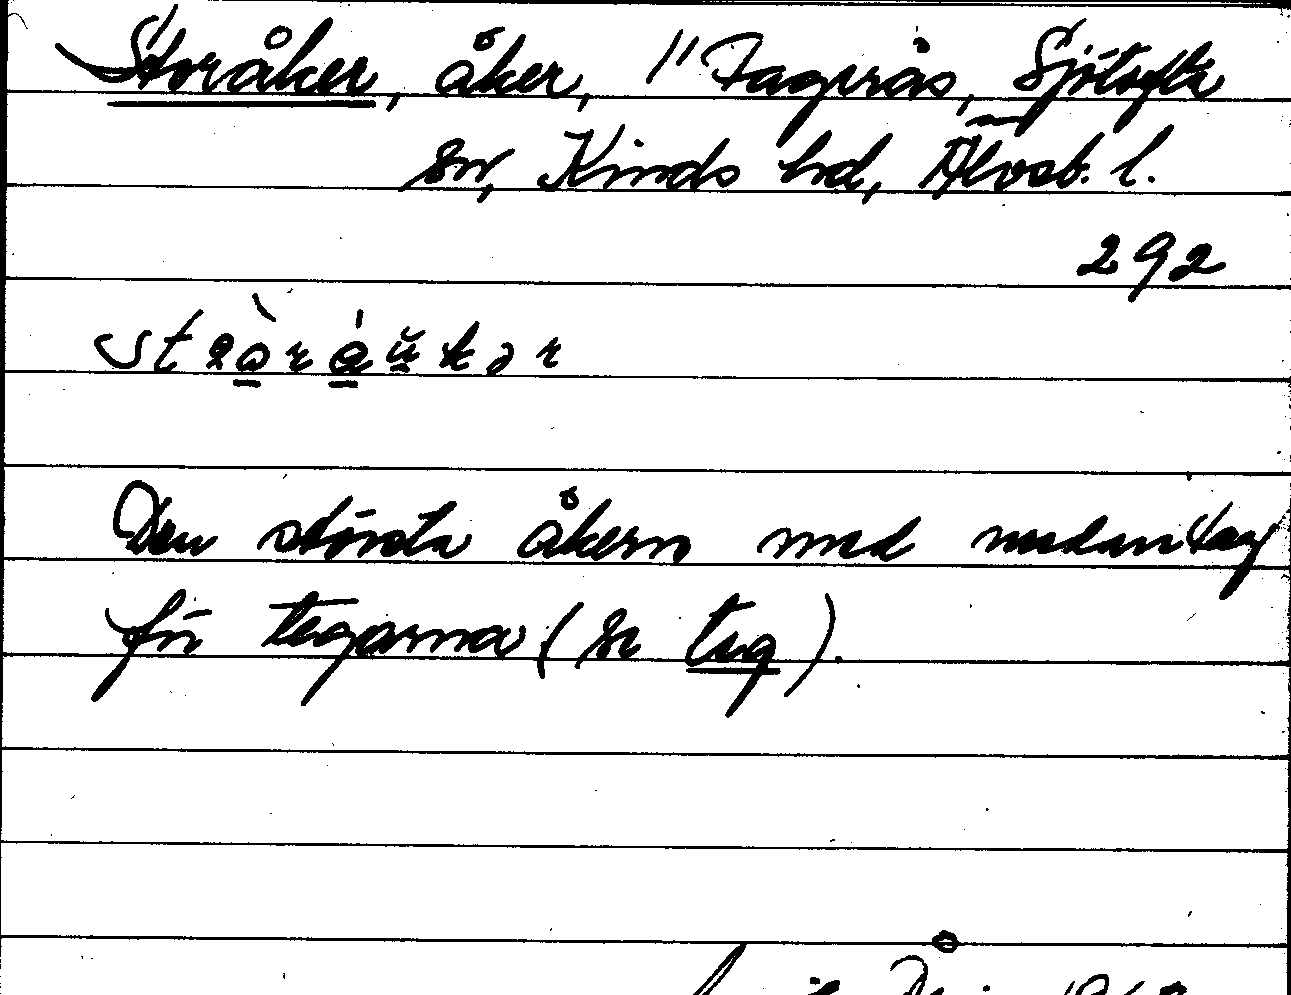 Storåker, åker, 1" Fagerås, Sjötofta
sn, Kinds hd, Älvsb. l.
292
Den största åkern med undantag
för tegarna (se teg).